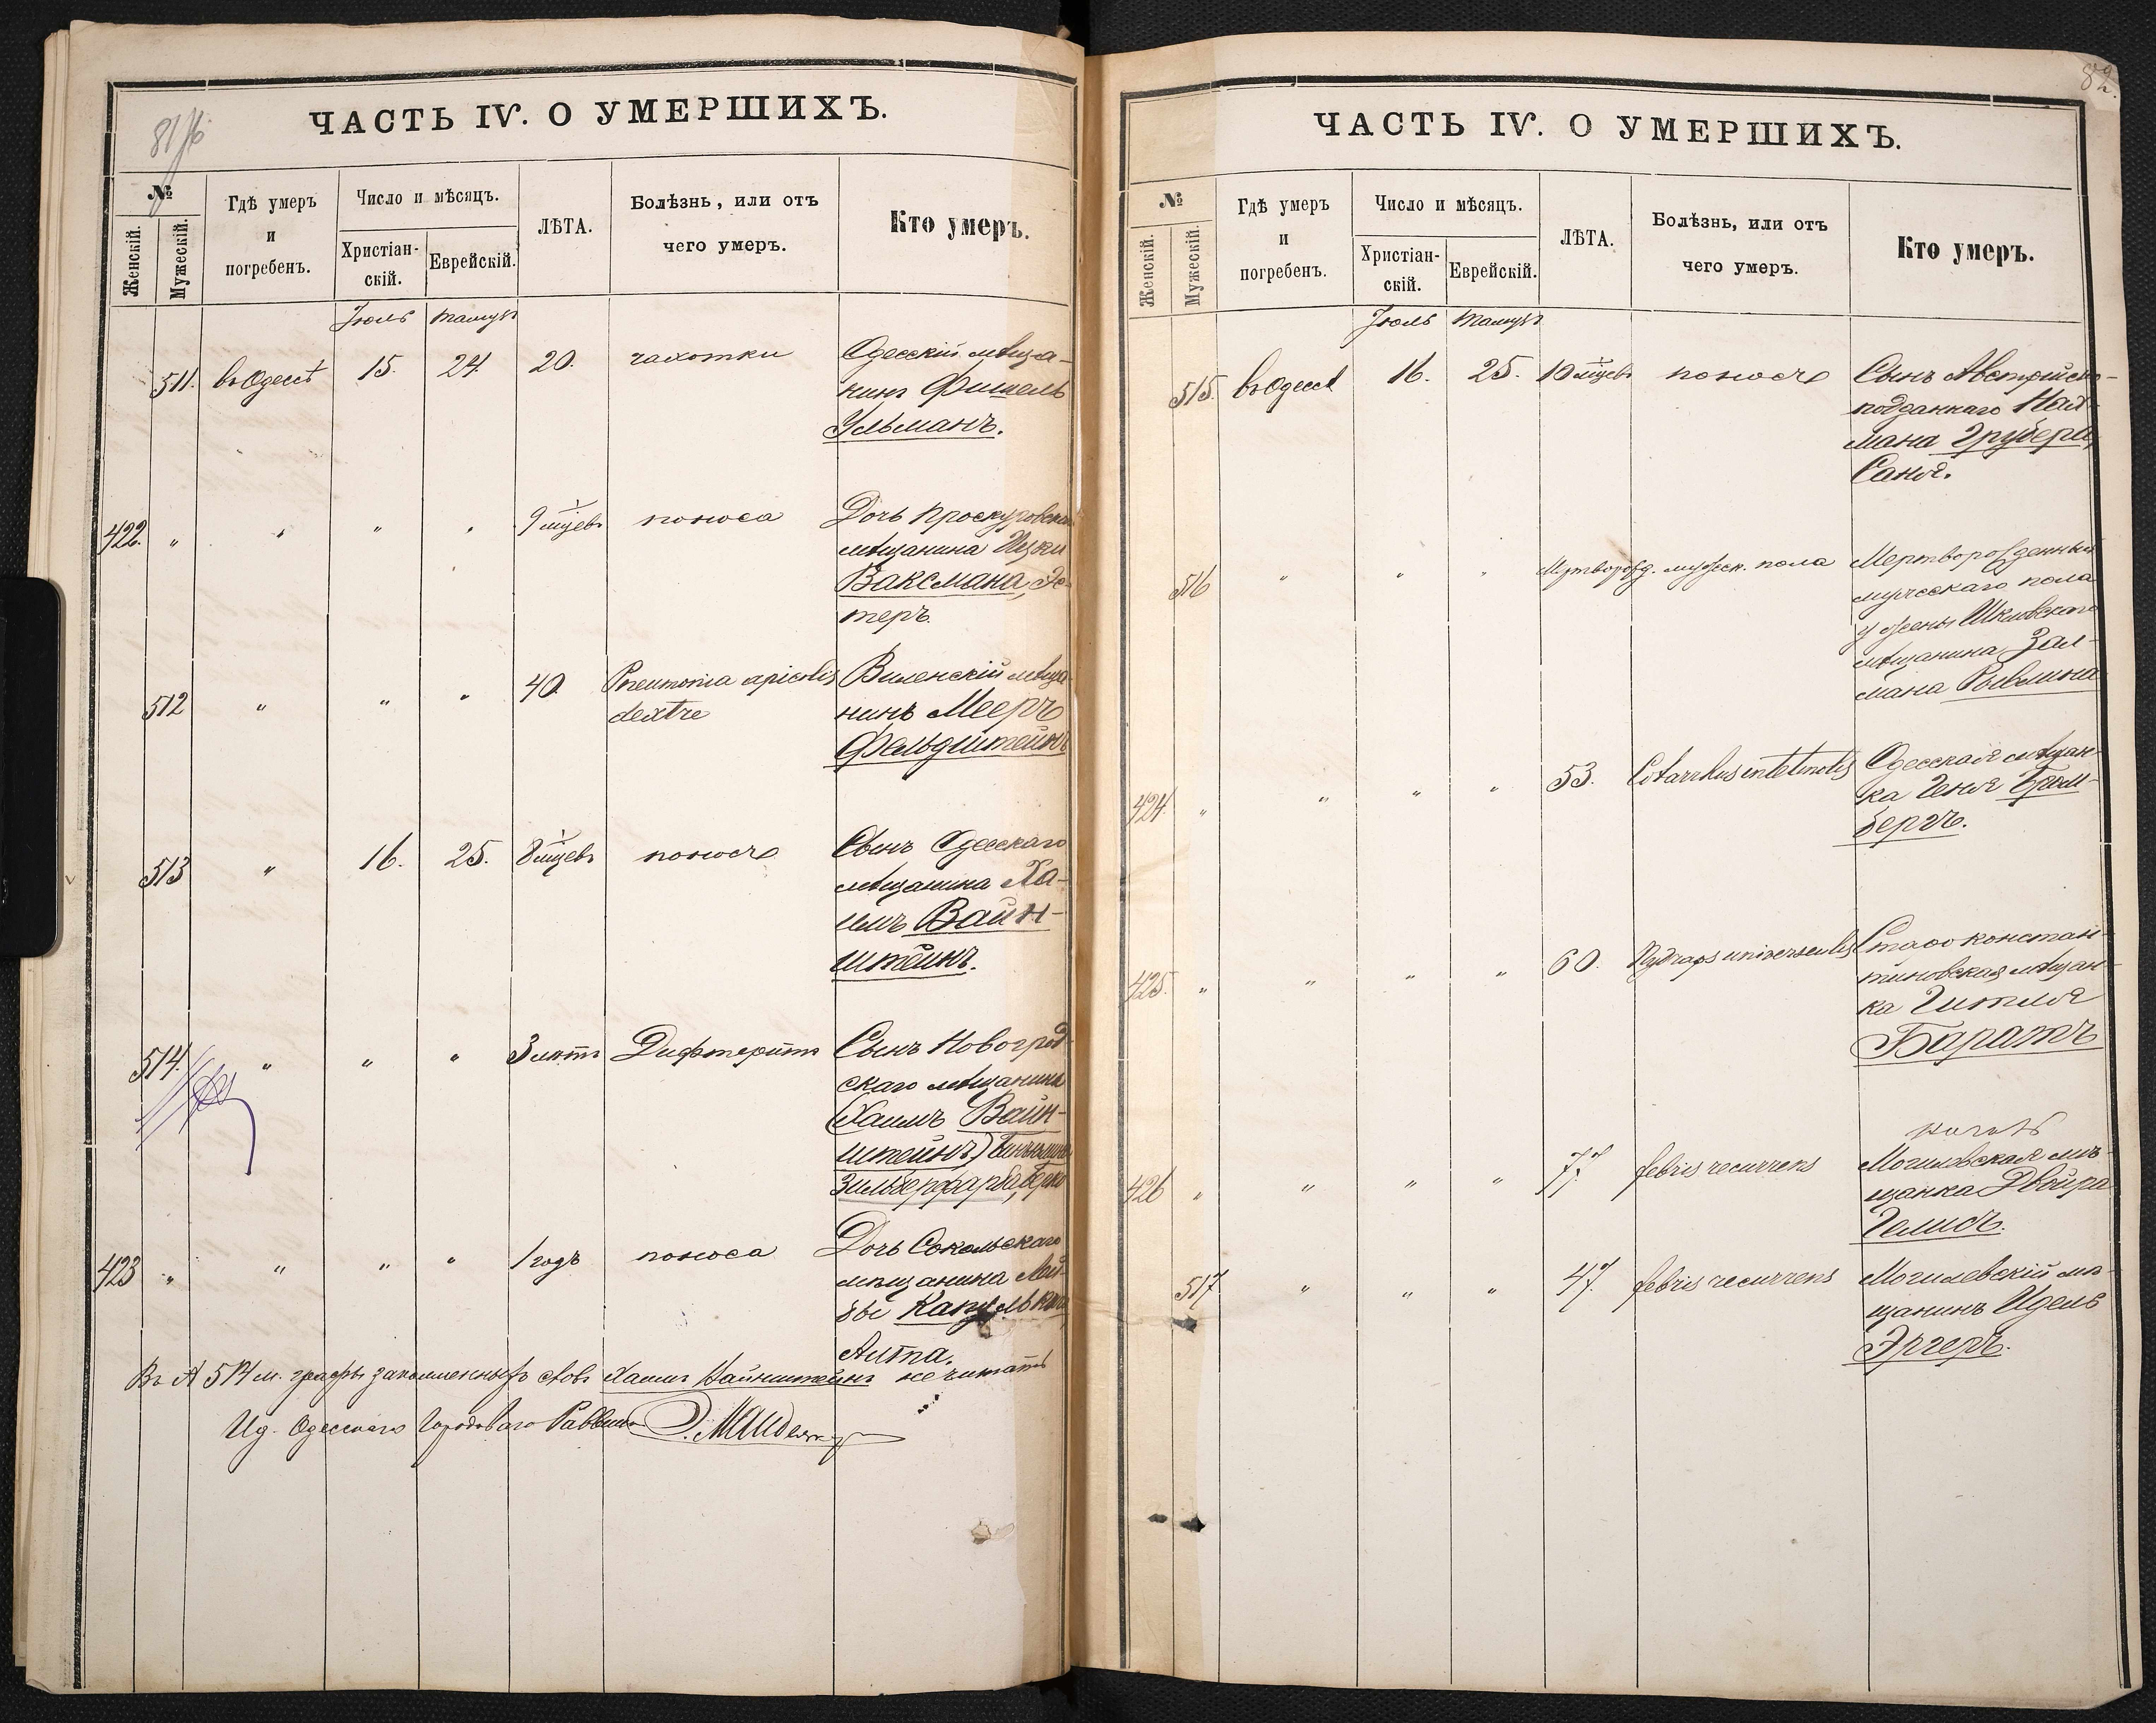 ЧАСТЬ IV. О УМЕРШИХЪ.
№
Женскій.
Мужескій.
Гдѣ умеръ
и
погребенъ.
Число и мѣсяцъ.
Христіан-
скій.
Еврейскій.
ЛѢТА.
Болѣзнь, или отъ
чего умеръ.
Кто умеръ.
Іюль Тамузъ
511. въ Одессѣ 15. 24. 20. чахотки Одесскій мѣща-
нинъ Фишель
Ульманъ.
422. " " " " 9 мѣсцевъ поноса Дочь Проскуровска
мѣщанина Ицки
Ваксмана, Эс-
теръ.
512 " " " 40. Pneumonia apicalis Виленскій мѣща-
dextre нинъ Мееръ
Фельдштейнъ
513 " 16. 25. 8 мѣсцевъ поносъ Сынъ Одесскаго
мѣщанина Ха-
имъ Вайн-
штейнъ.
514. " " " 3 лѣтъ Дифтеритъ Сынъ Новоград-
скаго мѣщанина
(Хаимъ Вайн-
штейнъ)
Зильберфарба, Берко
423 " " " " 1 годъ поноса Дочь Сокольскаго
мѣщанина Лей-
бы Капулькина
Анта.
Въ № 514 м. графы слов Хаимъ Вайнштейнъ не читать
Ид. Одесскаго Городоваго Раввина
82.
ЧАСТЬ IV. О УМЕРШИХЪ.
№
Женскій.
Мужескій.
Гдѣ умеръ
и
погребенъ.
Число и мѣсяцъ.
Христіан-
скій.
Еврейскій.
ЛѢТА.
Болѣзнь, или отъ
чего умеръ.
Кто умеръ.
Іюль Тамузъ
515. въ Одессѣ 16. 25. 10 мѣсцевъ поносъ Сынъ Австрійско-
подданнаго Нах-
мана Грубера,
Саня.
516 " " " Мертворожд. мужеск. пола Мертворожденный
мужескаго пола
у жены Шкловскаго
мѣщанина Зал-
мана Рывлина
424 " " " " 53. Catarrhus intestinalis Одесская мѣщан-
ка Геня Бром-
бергъ.
425. " " " " 60. Hydrops universalis Староконстан-
тиновская мѣщан-
ка Гитля
Баратъ
426 " " " " 77. febris recurrens Могилевская мѣ-
щанка Двойра
Гелисъ.
517 " " " 47. febris recurrens Могилевскій мѣ-
щанинъ Идель
Эргеръ.